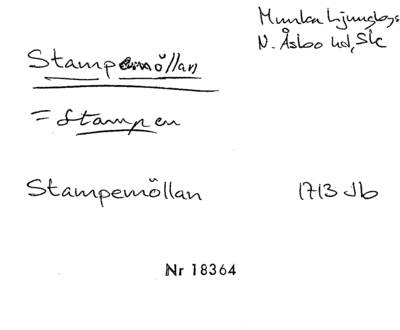 Munka Ljungbys
N. Åsbo hd, Sk
Stampemöllan
= Stampen
Stampemöllan 1713 Jb
Nr 18364